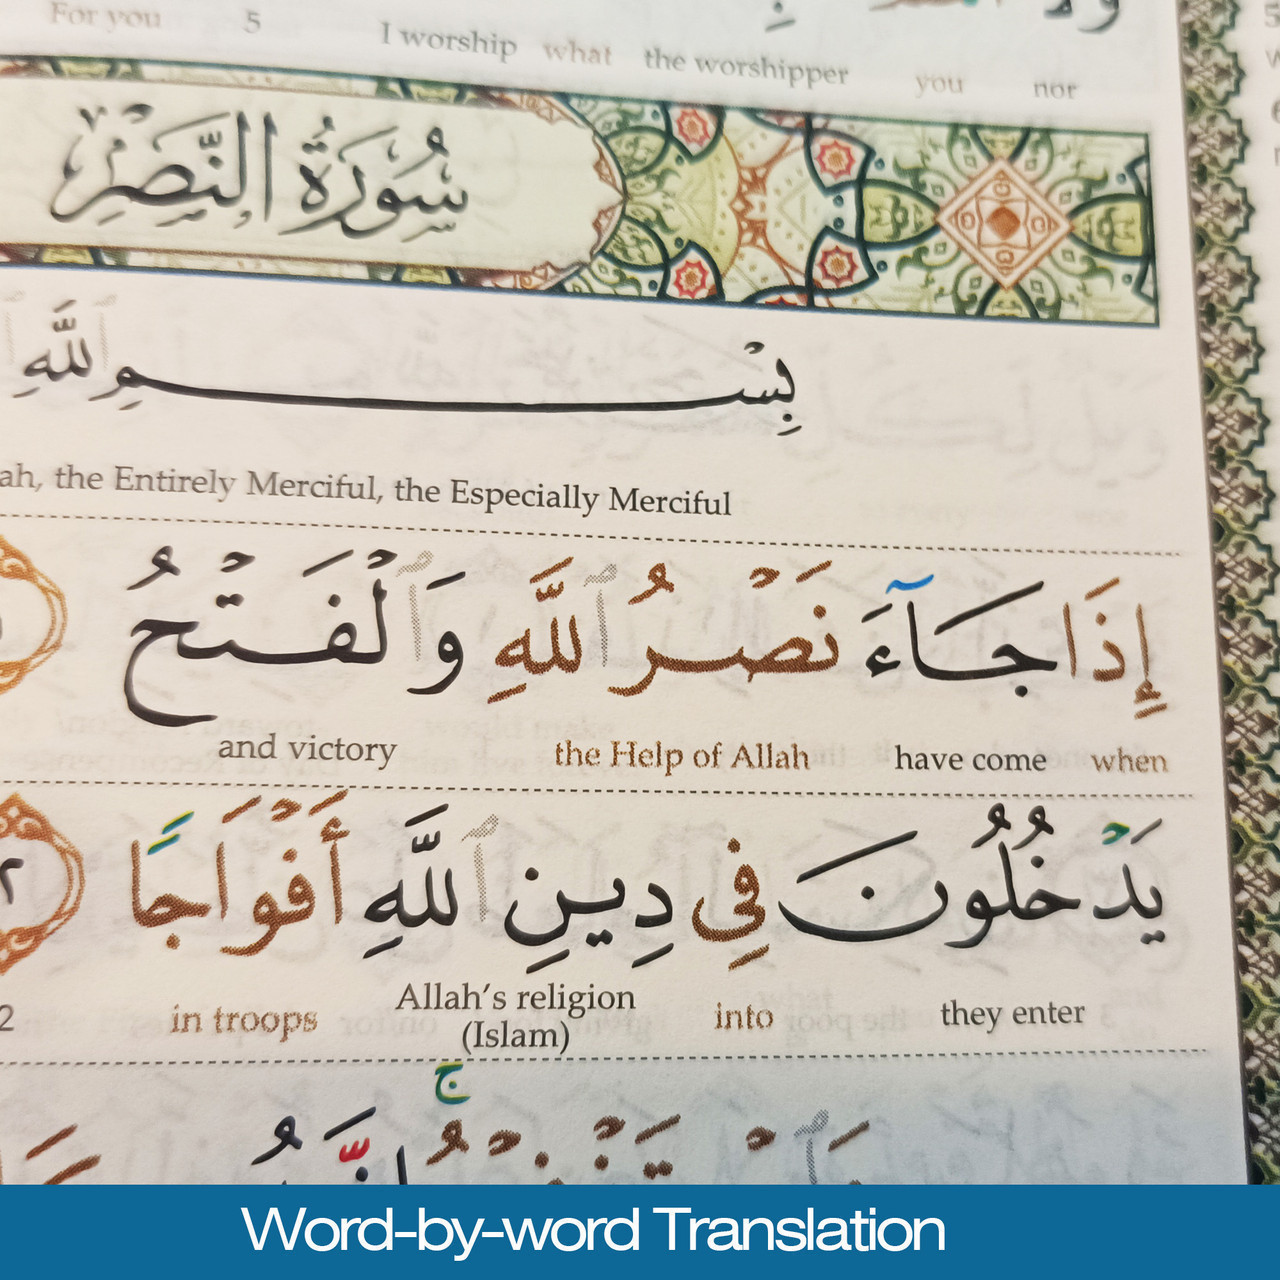 For you 5 I worship what the worshipper you nor
سُورَةُ النَّصْرِ
بِسْمِ ٱللَّهِ
ah, the Entirely Merciful, the Especially Merciful
إِذَا جَآءَ نَصْرُ ٱللَّهِ وَٱلْفَتْحُ
and victory the Help of Allah have come when
يَدْخُلُونَ فِى دِينِ ٱللَّهِ أَفْوَاجًا ٢
2 in troops Allah's religion (Islam) into they enter
Word-by-word Translation